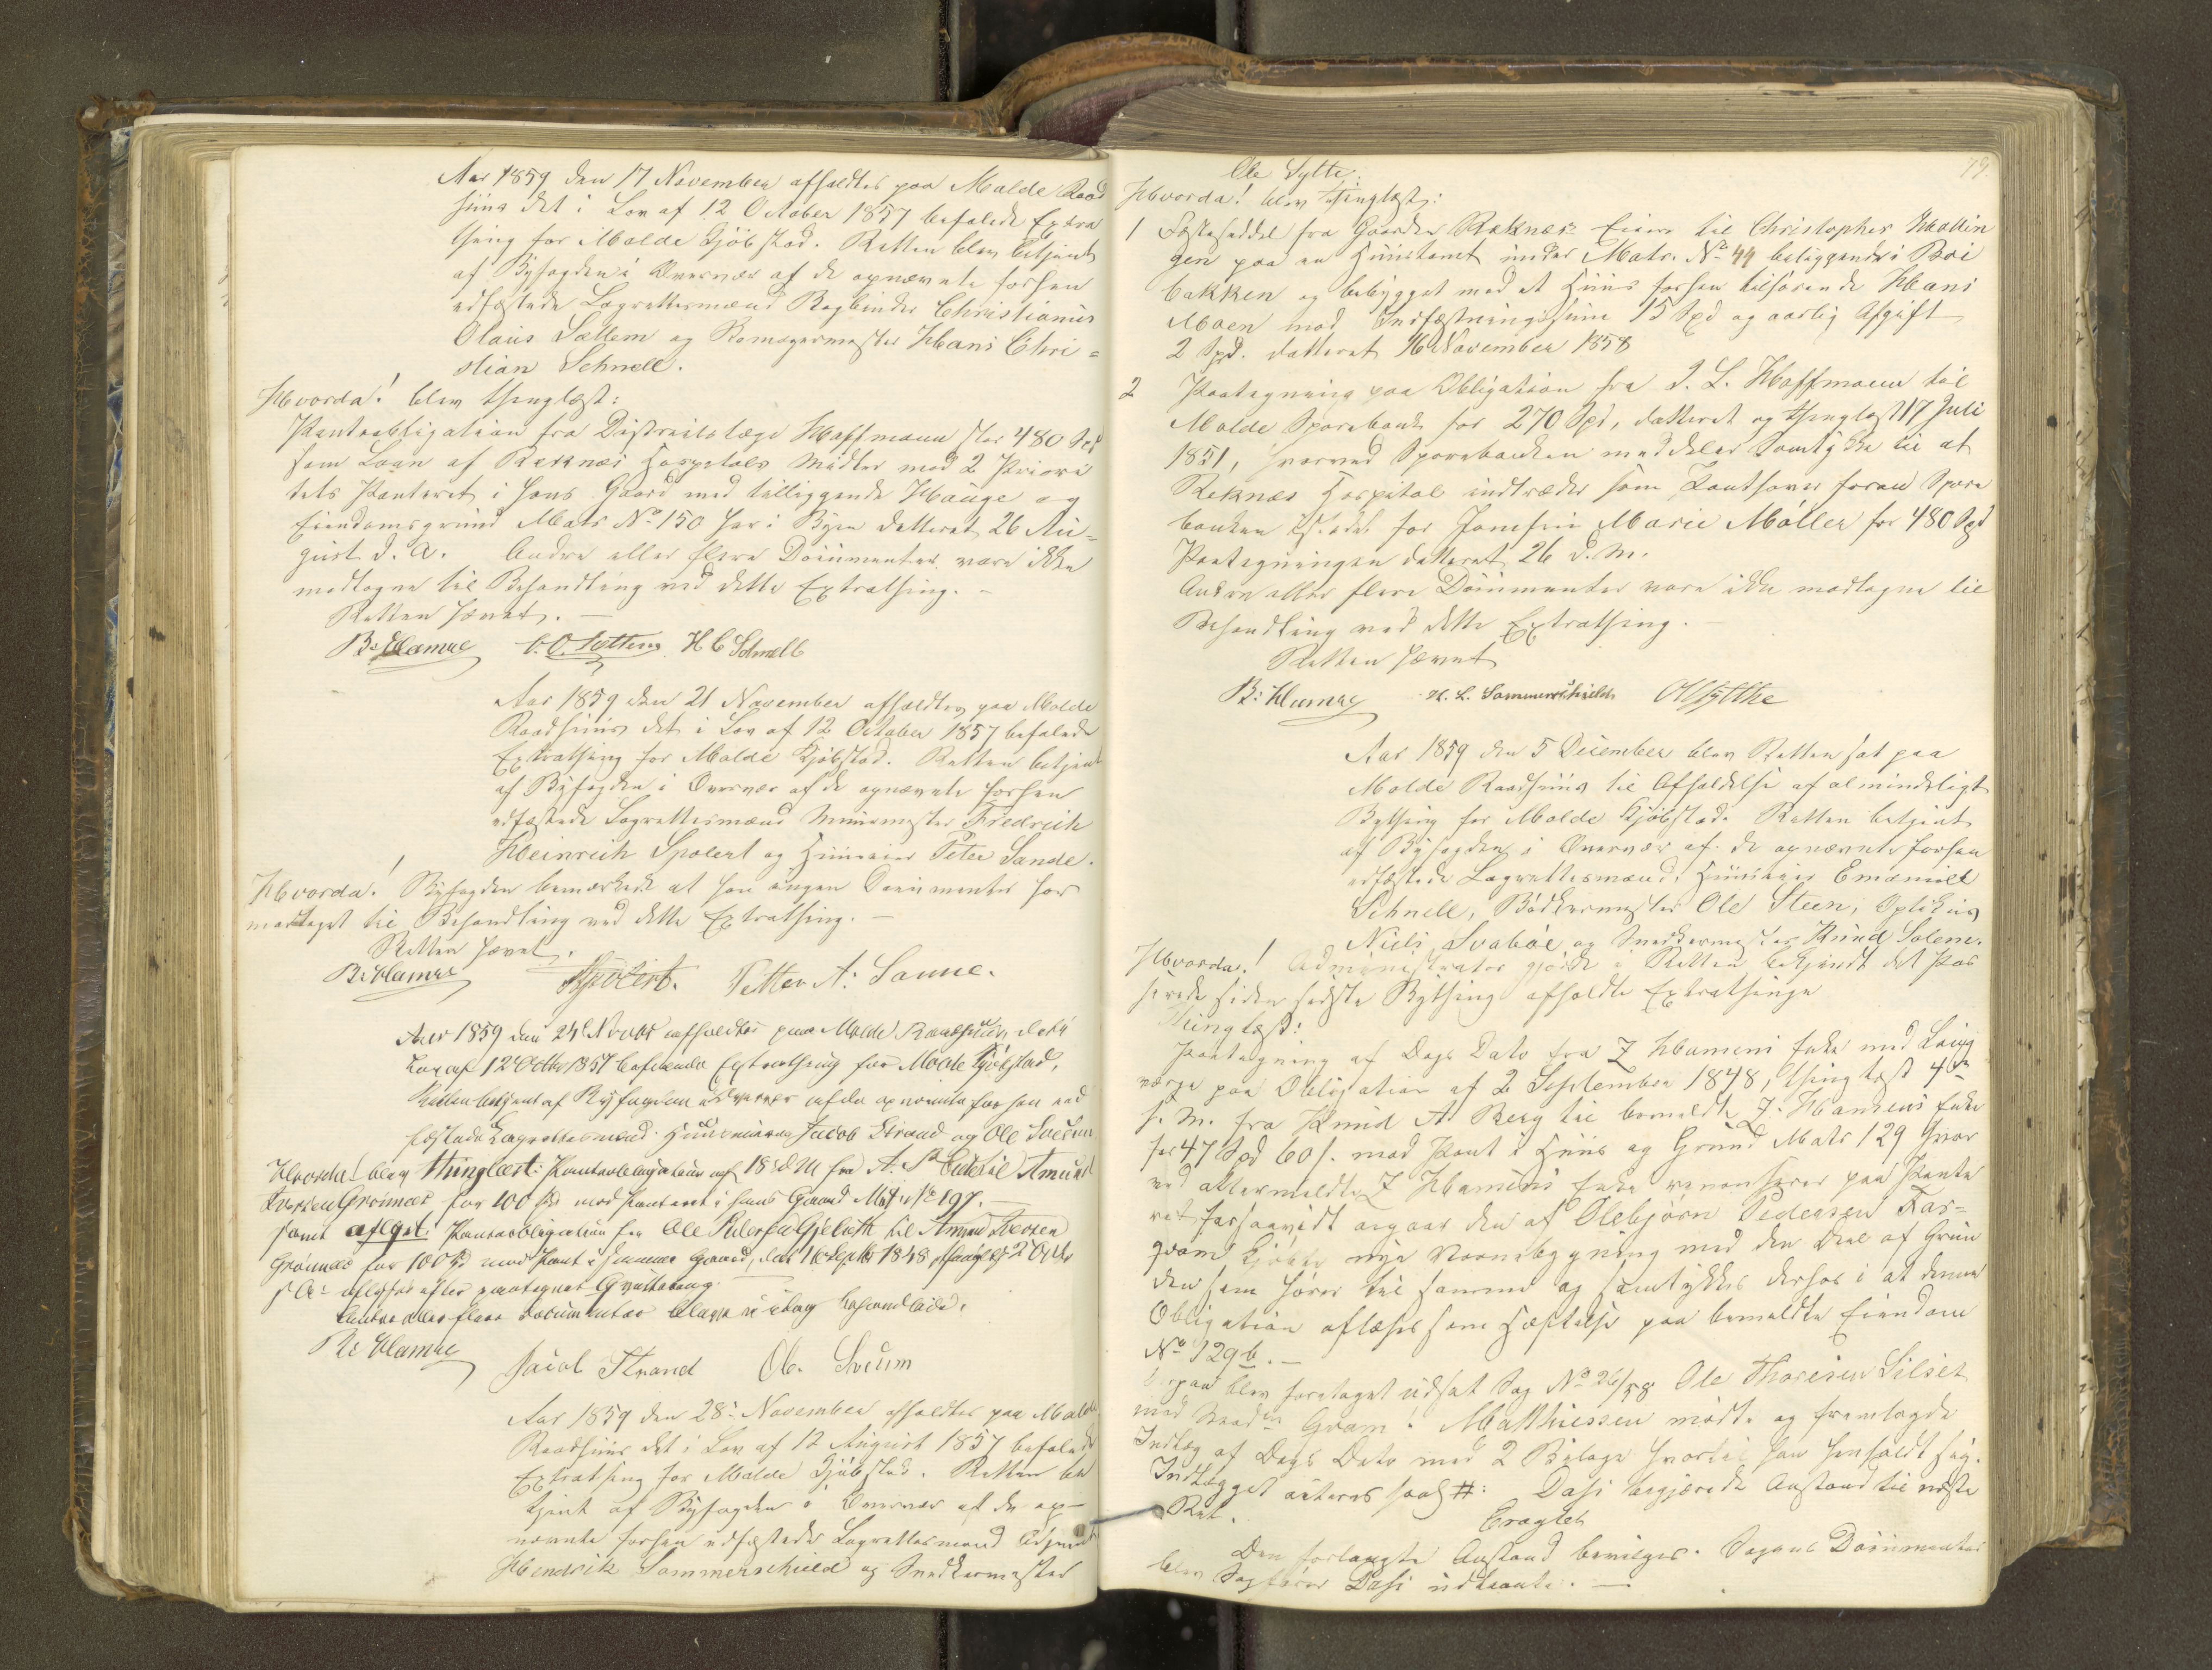 Aar 1859 den 17 November afholdtes paa Molde Raad
huus det i Lov af 12 October 1857 befalede Extra
thing for Molde Kjøbstad. Retten blev betjent
af Byfogden i Overvær af de opnævnte forhen
edfæstede Lagrettesmænd Bogbinder Christianus
Olaus Sættem og Bomagermester Hans Chri=
stian Schnell.
Hvorda! blev thinglæst:
Pantobligation fra Districtslæge Hoffmann stor 480 Spd
som Laan af Reknæs Hospitals Midler mod 2 Priori
tets Panteret i hans Gaard med tilliggende Hauge og
Eiendomsgrund Matr No 150 her i Byen datteret 26 Au=
gust d. A. Andre eller flere Documenter vare ikke
modtagne til Behandling ved dette Extrathing. -
Retten hævet. -
H C Schnell
Aar 1859 den 21 November afholdtes paa Molde
Raadhuus det i Lov af 12 October 1857 befalede
Extrathing for Molde Kjøbstad. Retten betjent
af Byfogden i Overvær af de opnævnte forhen
edfæstede Lagrettesmænd Muurmester Fredrich
Heinrich Spolert og Huuseier Peter Sande.
Hvorda! Byfogden bemærkede at han ingen Documenter har
modtaget til Behandling ved dette Extrathing. -
Retten hævet.
Spolert. Petter A: Sanne.
Aar 1859 den 24 Novbr afholdtes paa Molde Raadhuus det i
Lov af 12 Octbr 1857 befalede Extrathing for Molde Kjøbstad,
Retten betjent af Byfogden i Overvær af de opnævnte forhen ed
fæstede Lagrettesmænd Huuseierne Jacob Strand og Ole Sveum
Hvorda! blev thinglæst: Pantobligation af 18 d M fra A. til Amund
Iversen Grønnæs for 100 Spd mod Panteret i hans Gaard Matr No 197. -
samt aflyst: Pantobligation fra Ole Pedersen Gjeldseth til Amund Iversen
Grønnæs for 100 Spd mod Pant i samme Gaard, dat 16 Septbr 1848 thinglyst 2 Octbr
s A: aflyses efter paategnet Qvittering.
Andre eller flere Documenter bleve ei idag behandlede.
Jacob Strand Ol. Sveum
Aar 1859 den 28: November afholdtes paa Molde
Raadhuus det i Lov af 12 August 1857 befalede
Extrathing for Molde Kjøbstad. Retten be
tjent af Byfogden i Overvær af de op-
nævnte forhen edfæstede Lagrettesmænd Adjunct
Hendrik Sommerschield og Snedkermester
79.
Ole Sylte.
Hvorda! blev thinglæst:
1 Fæsteseddel fra Gaarden Reknæs Eiere til Christopher Hallin
gen paa en Huustomt under Matr. No 44 beliggende i Boi
bakken og bebygget med et Huus forhen tilhørende Hans
Moen mod Indfæstningssum 15 Spd og aarlig Afgift
2 Spd. datteret 16 November 1858
2 Paategning paa Obligation fra J. L. Hoffmann til
Molde Sparebank for 270 Spd, datteret og thinglæst 17 Juli
1851, hvorved Sparebanken meddeler Samtykke til at
Reknæs Hospital indtræder som Panthaver foran Spare
banken istedet for Jomfru Marie Møller for 480 Spd
Paategningen datteret 26 d. M.
Andre eller flere Documenter vare ikke modtagne til
Behandling ved dette Extrathing. -
Retten hævet
H. L. Sommerschield OlSylthe
Aar 1859 den 5 December blev Retten sat paa
Molde Raadhuus til Afholdelse af almindeligt
Bything for Molde Kjøbstad. Retten betjent
af Byfogden i Overvær af de opnævnte forhen
edfæstede Lagrettesmænd, Huuseier Emanuel
Schnell, Bødkermester Ole Steen, Optikus
Niels Svabøe og Snedkermester Knud Solem.
Hvorda! Administrator gjorde i Retten bekjendt det Pas
serede siden sidste Bything afholdte Extrathinge
Thinglæst:
Paategning af Dags Dato fra J Hammeni Enke med Laug
værge paa Obligation af 2 September 1848, thinglæst 4de
s. M. fra Knud A Berg til bemeldte J. Hansens Enke
for 47 Spd 60 s. mod Pant i Huus og Grund Matr 129 hvor
ved altermeldte J Hammeni Enke renoncerer paa Pante
ret forsaavidt angaar den af Olebjørn Pedersen Far=
qvam kjøbte nye Vaanebygning med den Deel af Grun
den som hører til samme og samtykkes derhos i at denne
Obligation aflæses som Hæftelse paa bemeldte Eiendom
No 129b. -
Derpaa blev foretaget udsat Sag No 26/58 Ole Thoresen Silset
mod Gram. Matthiessen mødte og fremlagde
Indlæg af Dags Dato med 2 Bilage hvortil han henholdt sig.
Indlægget acteres saal #: Dahl begjærede Anstand til næste
Ret.
Eragtet
Den forlangte Anstand bevilges. Sagens Documenter
blev Sagfører Dahl udlaante. -